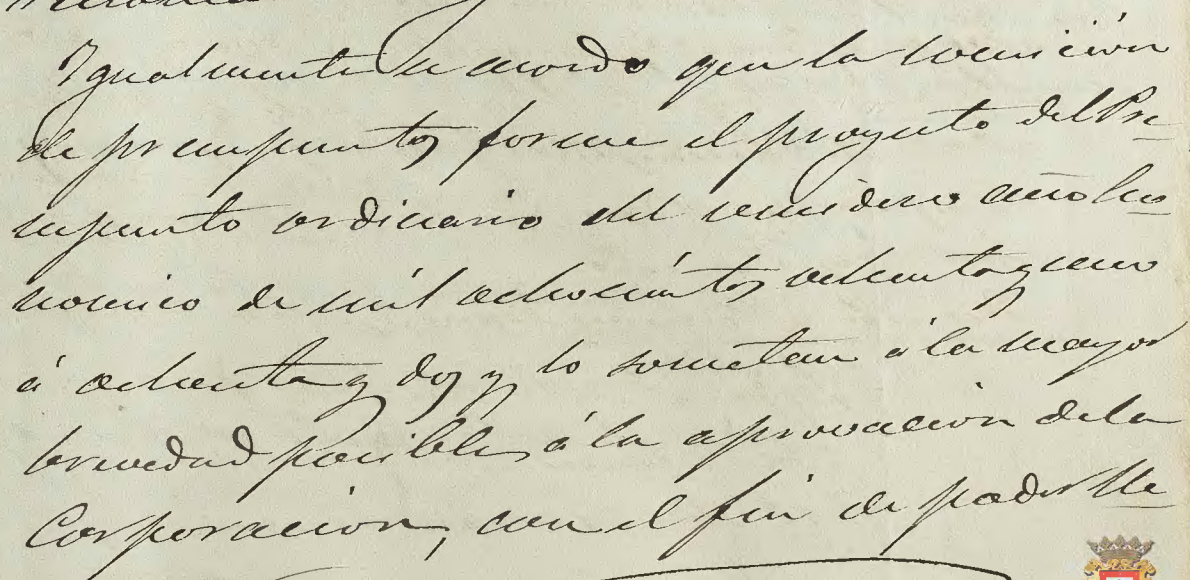 Igualmente se acordo que la comición
de presupuestos forme el proyecto del Pre-
supuesto ordinario del venidero año Eco
nomico de mil ochociéntos ochenta y uno
á ochenta y dos y lo sometan á la mayor
brevedad posible, á la aprovacion dela
Corporacion, con el fin de poder lle